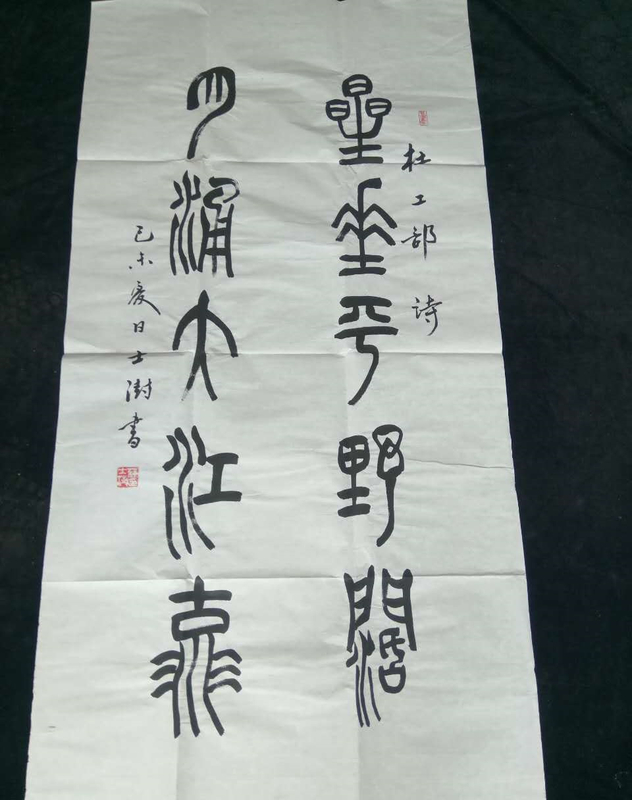 星垂平野闊
杜工部詩
月涌大江流
己未夏日士澍書